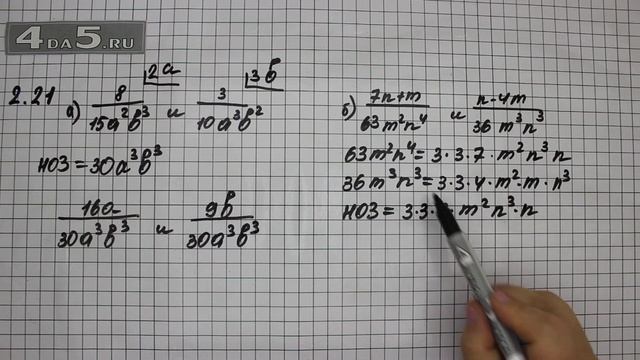 4DA5.RU
2.21
а) 8/15a²b³ и 3/10a³b²
2a 3b
НОЗ = 30a³b³
16a/30a³b³ и 9b/30a³b³
б) 7n+m/63m²n⁴ и n-4m/36m³n³
63m²n⁴ = 3·3·7·m²n³n
36m³n³ = 3·3·4·m²·m·n³
НОЗ = 3·3· m²n³·n